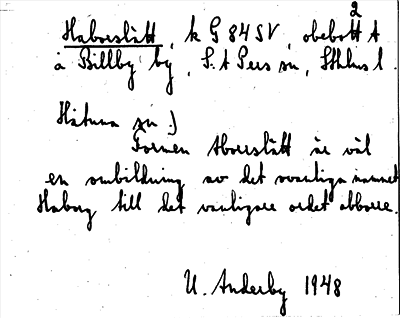 Haborslätt, k G 84 SV, obebott t
å Billby by, S:t Pers sn, Sthlms l.
Håtuna sn.)
Formen Aborrslätt är väl
en ombildning av det ovanliga namnet
Haborg till det vanligare ordet abborre.
U. Anderby 1948